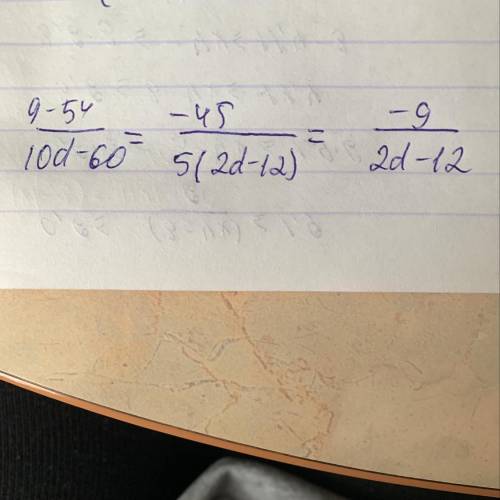 9-54/10d-60 = -45/5(2d-12) = -9/2d-12